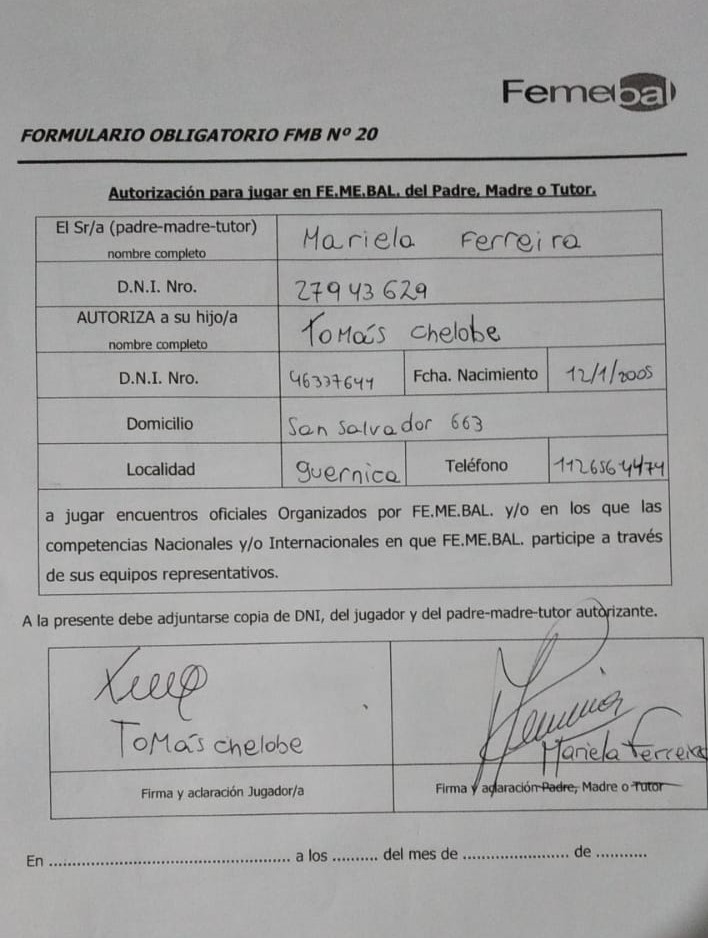 Femebal
FORMULARIO OBLIGATORIO FMB Nº 20
Autorización para jugar en FE.ME.BAL. del Padre, Madre o Tutor.
El Sr/a (padre-madre-tutor)
nombre completo
Mariela Ferreira
D.N.I. Nro.
27943629
AUTORIZA a su hijo/a
nombre completo
Tomás Chelobe
D.N.I. Nro.
46337644
Fcha. Nacimiento
12/1/2005
Domicilio
San Salvador 663
Localidad
guernica
Teléfono
1126564474
a jugar encuentros oficiales Organizados por FE.ME.BAL. y/o en los que las
competencias Nacionales y/o Internacionales en que FE.ME.BAL. participe a través
de sus equipos representativos.
A la presente debe adjuntarse copia de DNI, del jugador y del padre-madre-tutor autorizante.
Tomás chelobe
Mariela Ferreira
Firma y aclaración Jugador/a
Firma y aclaración Padre, Madre o Tutor
En ............................................ a los .......... del mes de ....................... de ...........